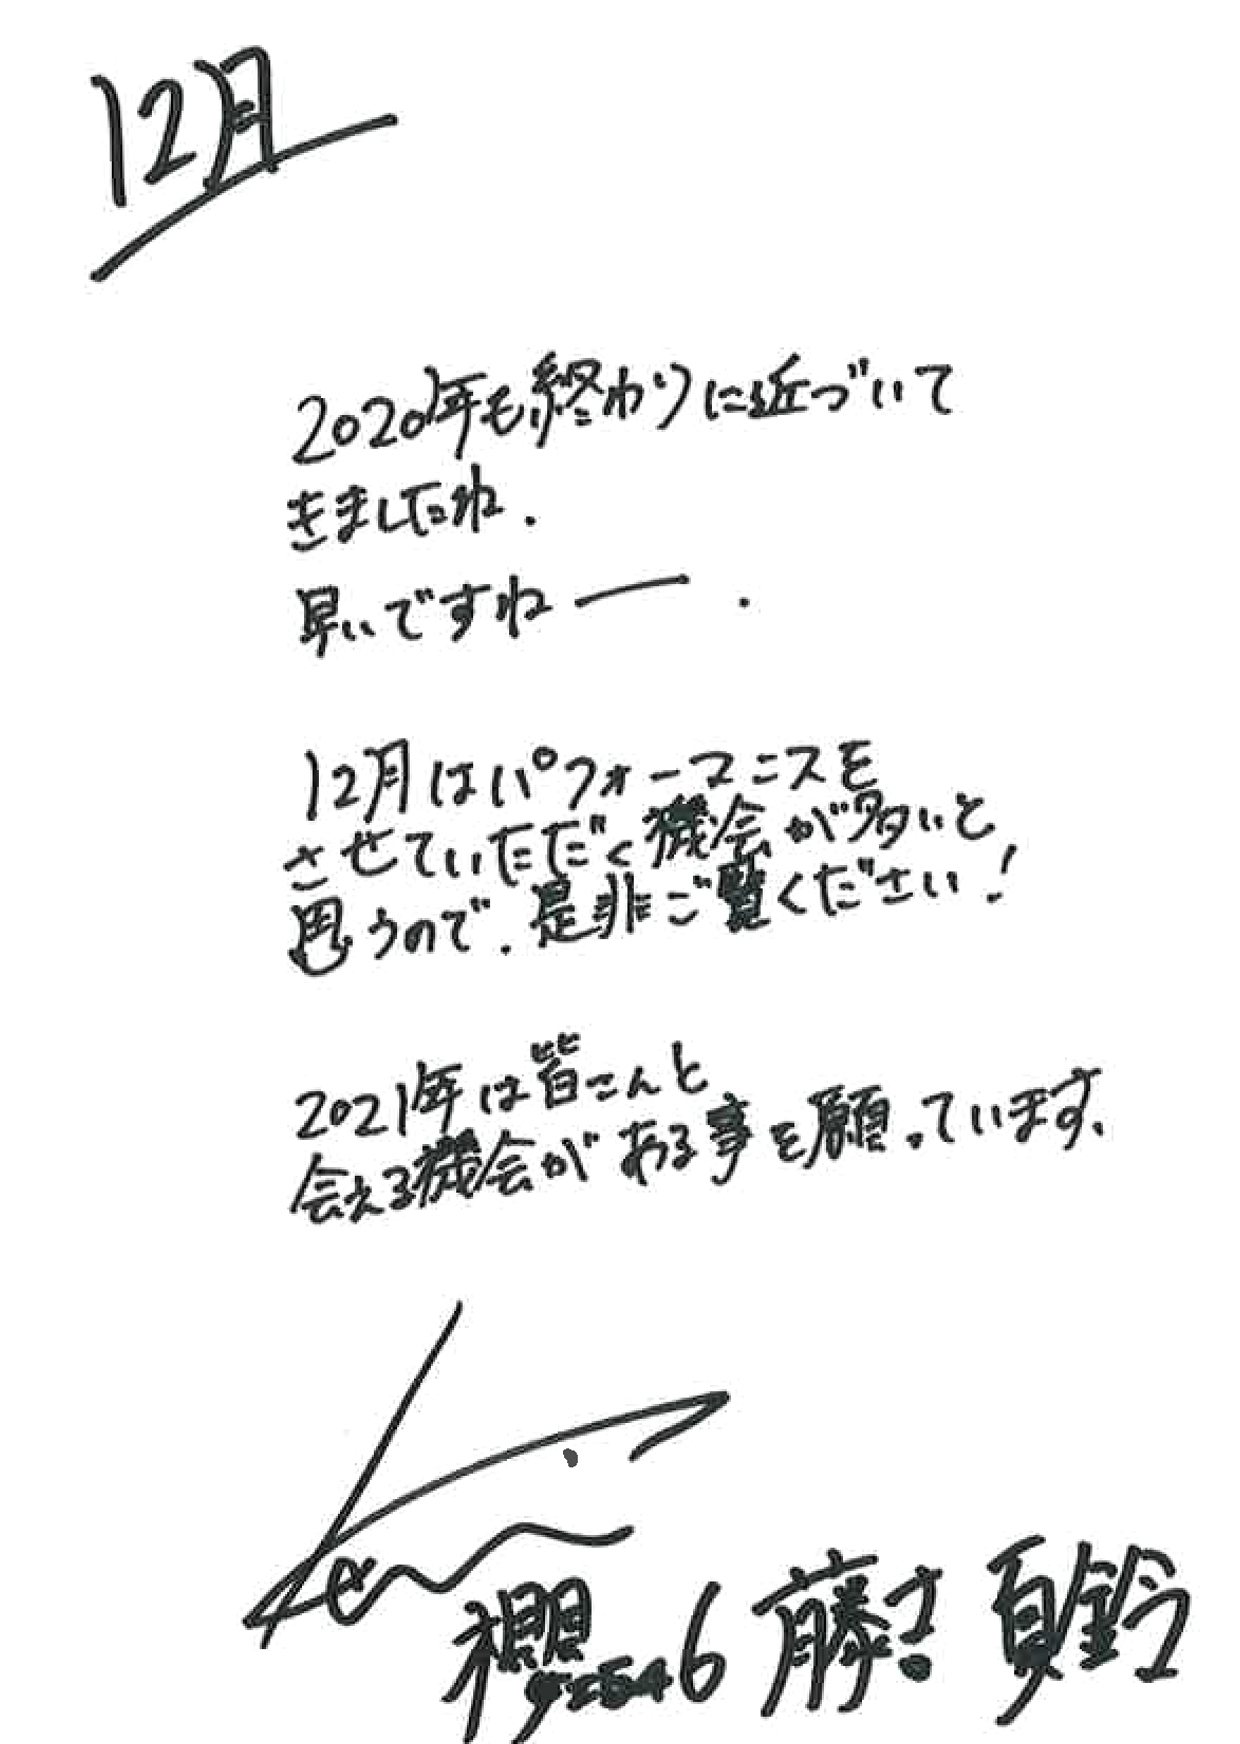 12月
2020年も終わりに近づいて
きましたね.
早いですねー .
12月はパフォーマンスを
させていただく機会が多いと
思うので.是非ご覧ください!
2021年は皆さんと
会える機会がある事を願っています、
櫻坂46 藤吉 夏鈴